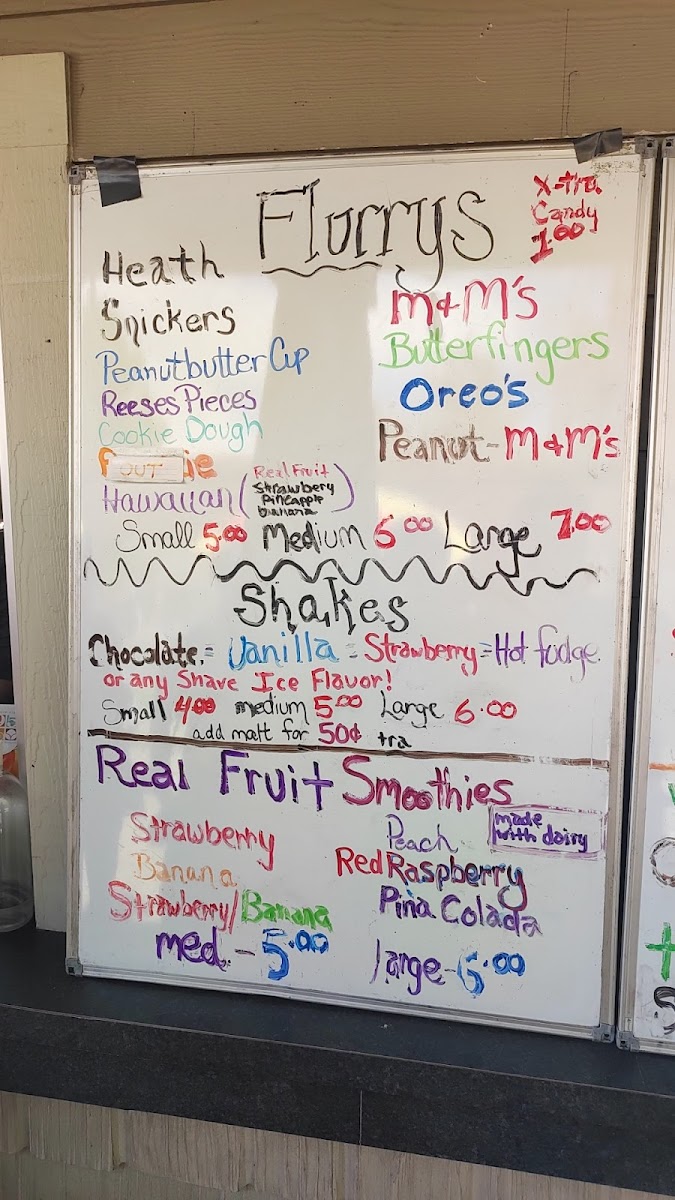 Flurrys
x-tra
Candy
1.00
Heath
Snickers
Peanutbutter Cup
Reeses Pieces
Cookie Dough
OUT
Hawaiian (Real Fruit
Strawbery
Pineapple
banana)
M&M's
Butterfingers
Oreo's
Peanut-M&M's
Small 5.00 Medium 6.00 Large 7.00
Shakes
Chocolate = Vanilla = Strawberry = Hot fudge
or any Shave Ice Flavor!
Small 4.00 medium 5.00 Large 6.00
add malt for 50¢ tra
Real Fruit Smoothies
made
with dairy
Strawberry
Banana
Strawberry/Banana
Peach
Red Raspberry
Piña Colada
med.- 5.00 large-6.00